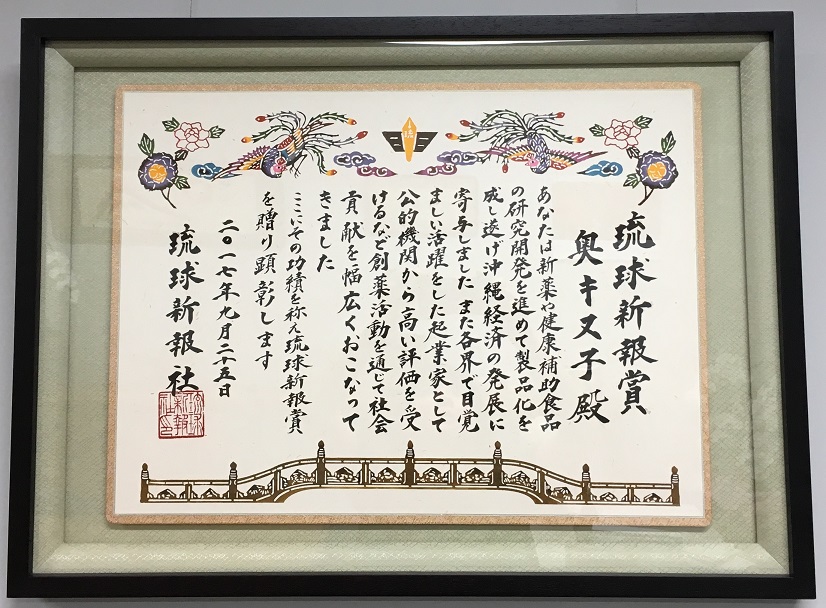 琉球新報賞
奥キヌ子殿
あなたは新薬や健康補助食品
の研究開発を進めて製品化を
成し遂げ沖縄経済の発展に
寄与しました また各界で目覚
ましい活躍をした起業家として
公的機関から高い評価を受
けるなど創薬活動を通じて社会
貢献を幅広くおこなって
きました
ここにその功績を称え琉球新報賞
を贈り顕彰します
二〇一七年九月二十五日
琉球新報社
琉球新報社之印